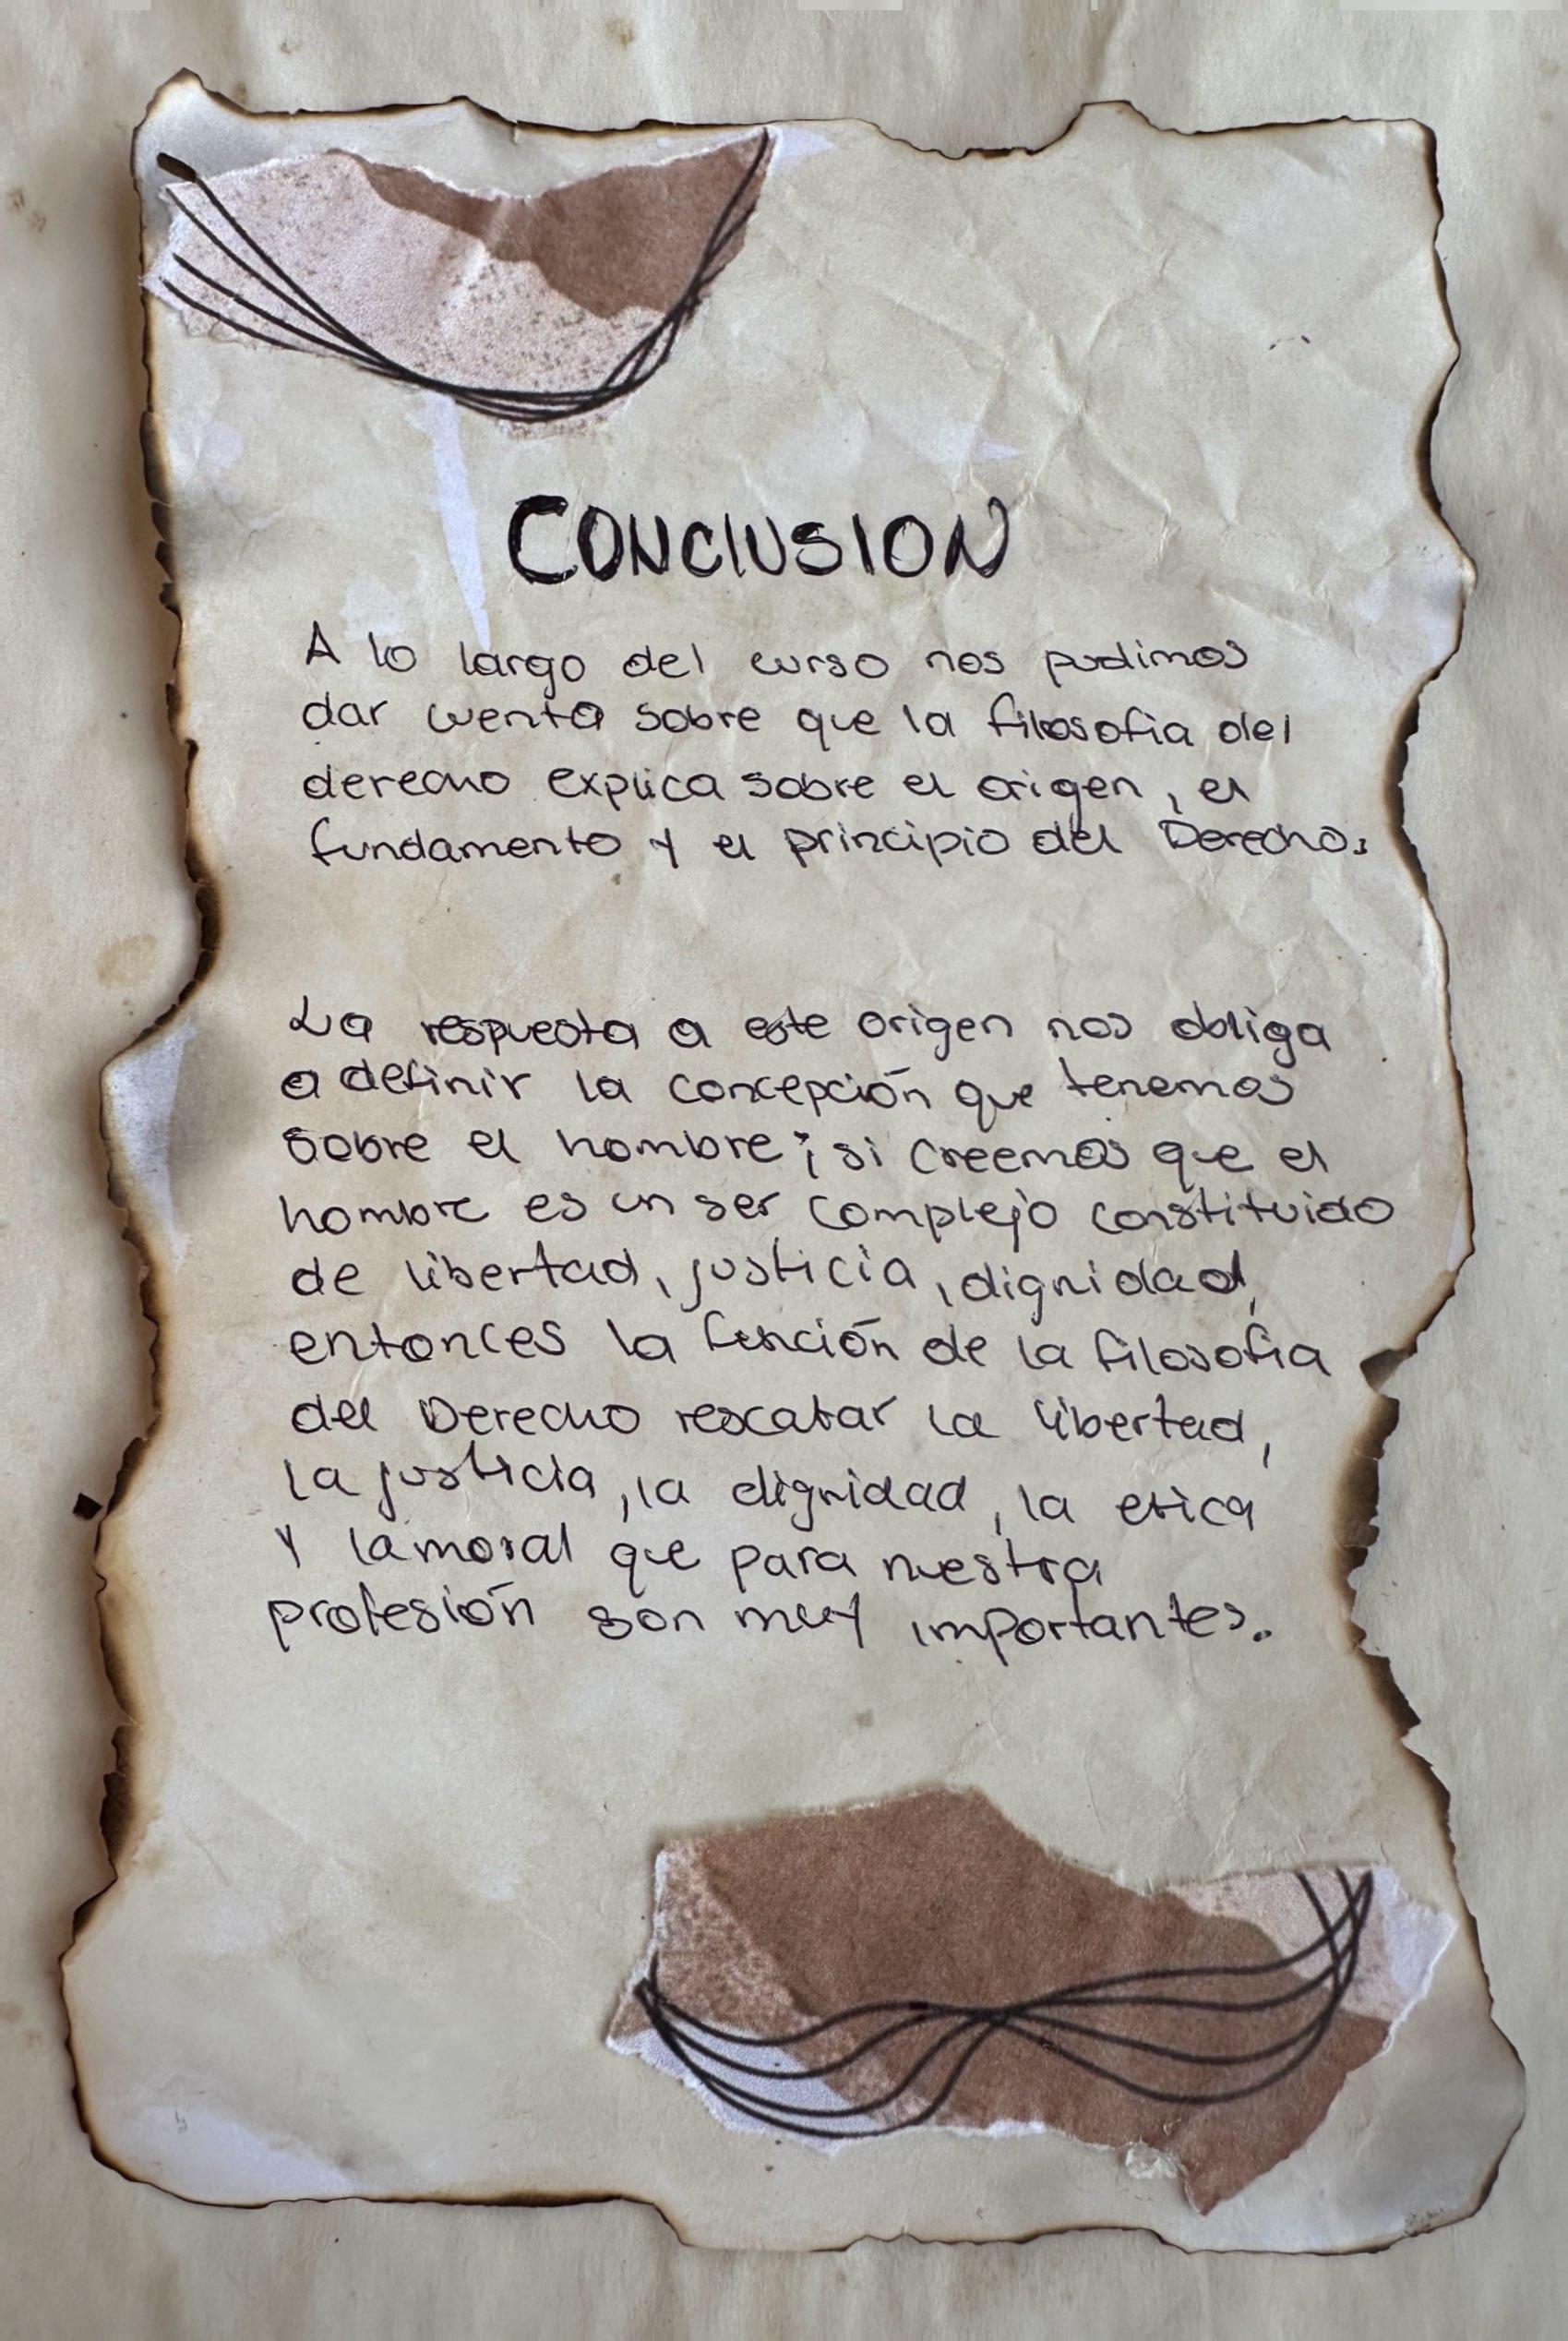 CONCLUSION
A lo largo del curso nos pudimos
dar cuenta sobre que la filosofia del
derecho explica sobre el origen, el
fundamento y el principio del Derecho.
La respuesta a este origen nos obliga
a definir la concepción que tenemos
sobre el hombre; si creemos que el
hombre es un ser complejo constituido
de libertad, justicia, dignidad,
entonces la función de la filosofia
del Derecho rescatar la libertad,
la justicia, la dignidad, la etica
y la moral que para nuestra
profesión son muy importantes.